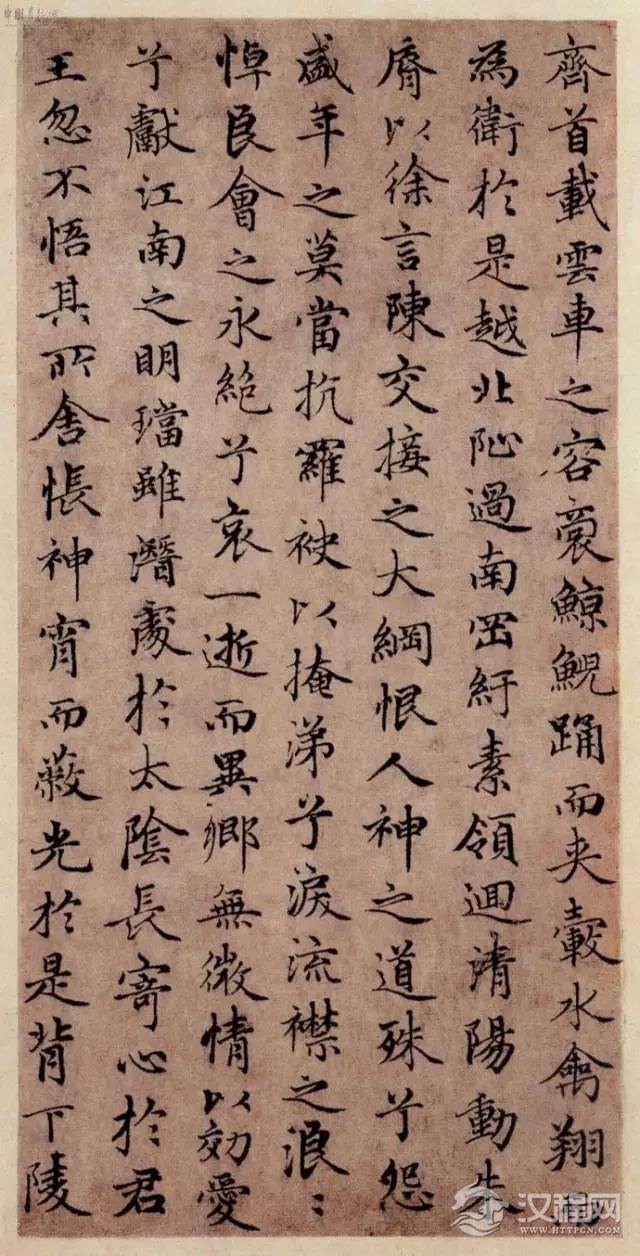 齊首載雲車之容裔鯨鯢踊而夾轂水禽翔而
為衛於是越北阯過南岡紆素領迴清陽動朱
脣以徐言陳交接之大綱恨人神之道殊兮怨
盛年之莫當抗羅袂以掩涕兮淚流襟之浪〻
悼良會之永絕兮哀一逝而異鄉無微情以効愛
兮獻江南之明璫雖潛處於太陰長寄心於君
王忽不悟其所舍悵神宵而蔽光於是背下陵
汉程网
WWW.HTTPCN.COM